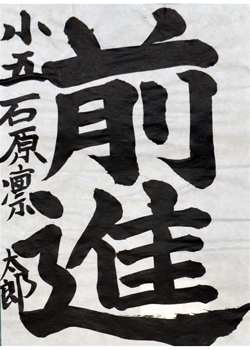 前進
小五 石原凛太郎